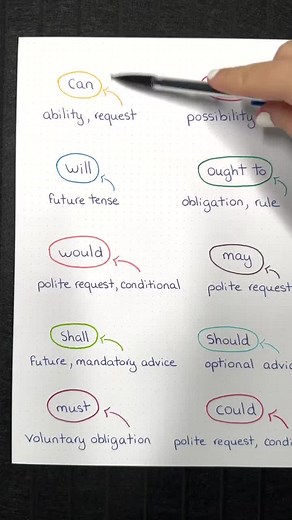 can
ability, request
possibility
will
ought to
future tense
obligation, rule
would
may
polite request, conditional
polite request
shall
should
future, mandatory advice
optional advic
must
could
voluntary obligation
polite request, condi